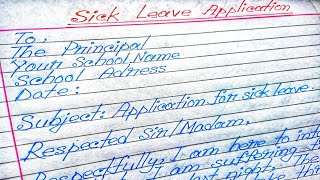 Sick Leave Application
To,
The Principal
Your School Name
School Adress
Date:
Subject: Application for sick leave
Respected Sir/Madam,
Respectfully, I am here to
I am suffering
last night. The